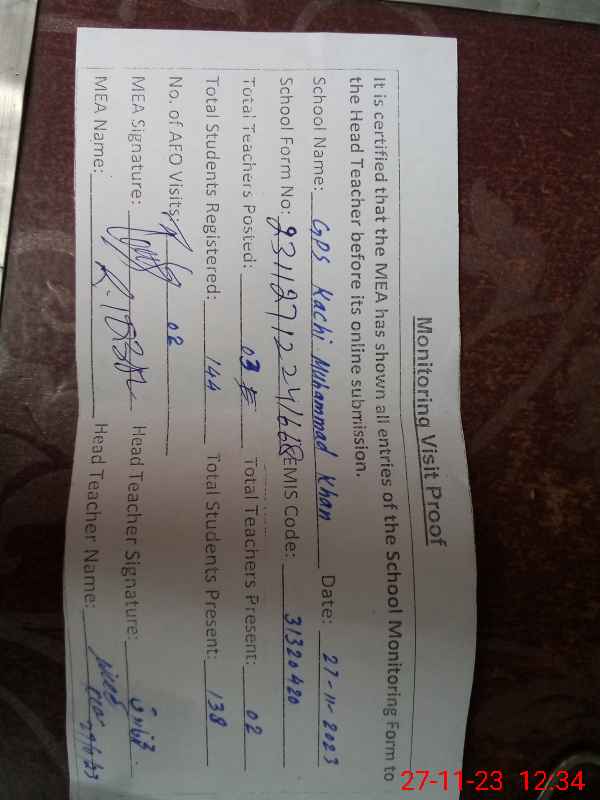 Monitoring Visit Proof
It is certified that the MEA has shown all entries of the School Monitoring Form to
the Head Teacher before its online submission.
School Name: GPS Kachi Muhammad Khan Date: 27-11-2023
School Form No: EMIS Code: 31320420
Total Teachers Posted: 03 Total Teachers Present: 02
Total Students Registered: 144 Total Students Present: 138
No. of AFO Visits: 02
MEA Signature: Head Teacher Signature:
MEA Name: Head Teacher Name:
27-11-23 12:34